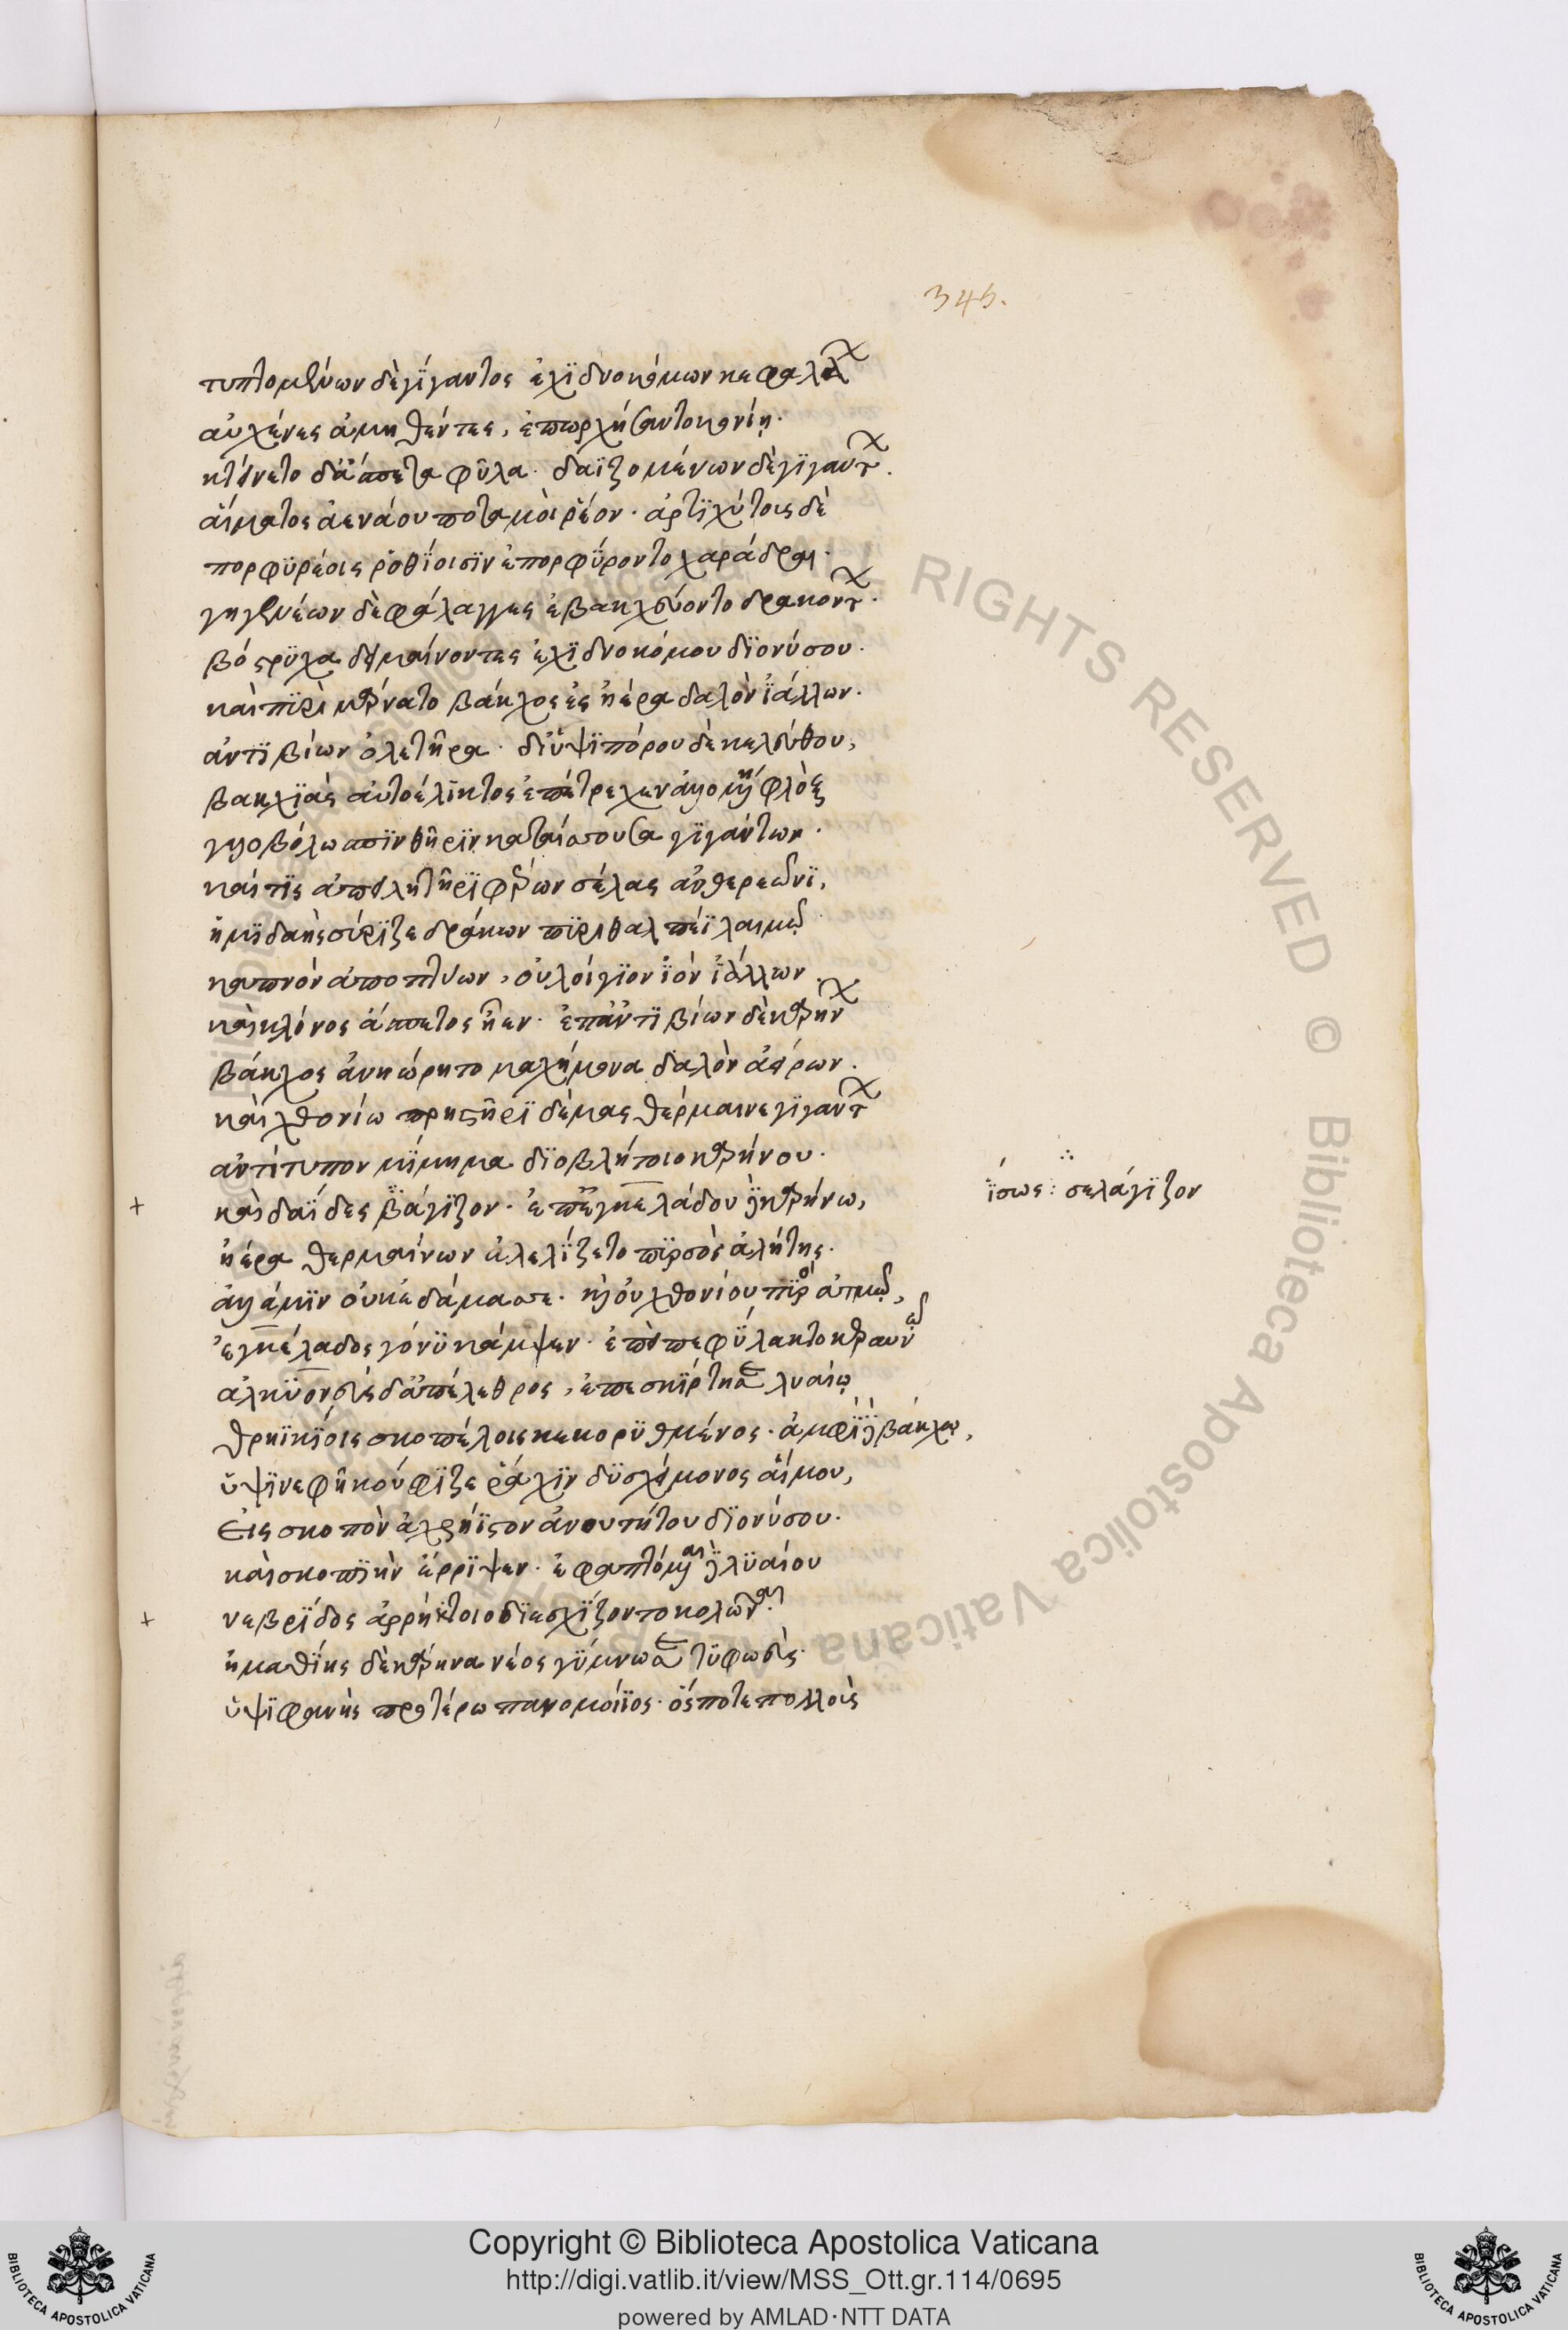 345.
τυπτομένων δὲ γίγαντος ἐχιδνοκόμων κεφαλάων
αὐχένες ἀμηθέντες, ἐπωρχήσαντο κονίῃ.
κτείνετο δ' ἄσπετα φῦλα. δαϊζομένων δὲ γιγάντων.
αἵματος ἀενάου ποταμοὶ ῥέον. ἀρτιχύτοις δὲ
πορφυρέοις ῥοθίοισιν ἐπορφύροντο χαράδραι.
γηγενέων δὲ φάλαγγες ἐβακχεύοντο δρακόντων.
βόστρυχα δειμαίνοντες ἐχιδνοκόμου διονύσου.
καὶ πυρὶ μάρνατο βάκχος ἐς ἠέρα δαλὸν ἰάλλων.
ἀντιβίων ὀλετῆρα. δι' ὑψιπόρου δὲ κελεύθου,
βακχιὰς αὐτοέλικτος ἐπέτρεχεν ἁλλομένη φλὸξ
γυιοβόλῳ σπινθῆριν καταΐσσουσα γιγάντων.
καί τις ἀπειλητῆρι φέρων σέλας ἀνθερεῶνι,
ἡμιδαὴς σύριζε δράκων πυριθαλπέϊ λαιμῷ
καπνὸν ἀποπτύων, οὐ λοίγιον ἰὸν ἰάλλων.
καὶ κλόνος ἄσπετος ἦεν. ἐπ' ἀντιβίων δὲ καρήνων
βάκχος ἀνῃώρητο μαχήμονα δαλὸν ἀείρων.
καὶ χθονίῳ πρηστῆρι δέμας θέρμαινε γιγάντων
ἀντίτυπον μίμημα διοβλήτοιο κεραύνου.
καὶ δαΐδες βάγιζον. ἐπ' ἐγκελάδου δὲ καρήνῳ,
ἠέρα θερμαίνων ἐλελίζετο πυρσὸς ἀλήτης.
ἀλλά μιν οὐκ ἐδάμασσε. καὶ οὐ χθονίου πυρὸς ἀτμῷ,
ἐγκέλαδος γόνυ κάμψεν. ἐπεὶ πεφύλακτο κεραυνῷ
ἀλκυονεὺς δ' ἀπέλεθρος, ἐπεσκίρτησε λυαίῳ
θρηϊκίοις σκοπέλοις κεκορυθμένος. ἀμφὶ δὲ βάκχῳ,
ὑψινεφῆ κούφιζε ῥάχιν δυσχείμονος αἵμου,
εἰς σκοπὸν ἀχρήϊστον ἀνουτήτου διονύσου.
καὶ σκοπιὴν ἔρριψεν. ἐφαπτόμεναι δὲ λυαίου
νεβρίδος ἀρρήκτοιο διεσχίζοντο κολῶναι.
ἠμαθίης δὲ κάρηνα νέος γύμνωσε τυφωεὺς.
ὑψιφανὴς προτέρῳ πανομοίϊος. ὅς ποτε πολλοῖς
+
+
ἴσως: σελάγιζον
Copyright © Biblioteca Apostolica Vaticana
http://digi.vatlib.it/view/MSS_Ott.gr.114/0695
powered by AMLAD·NTT DATA
BIBLIOTECA APOSTOLICA VATICANA
BIBLIOTECA APOSTOLICA VATICANA
Biblioteca Apostolica Vaticana ALL RIGHTS RESERVED ©